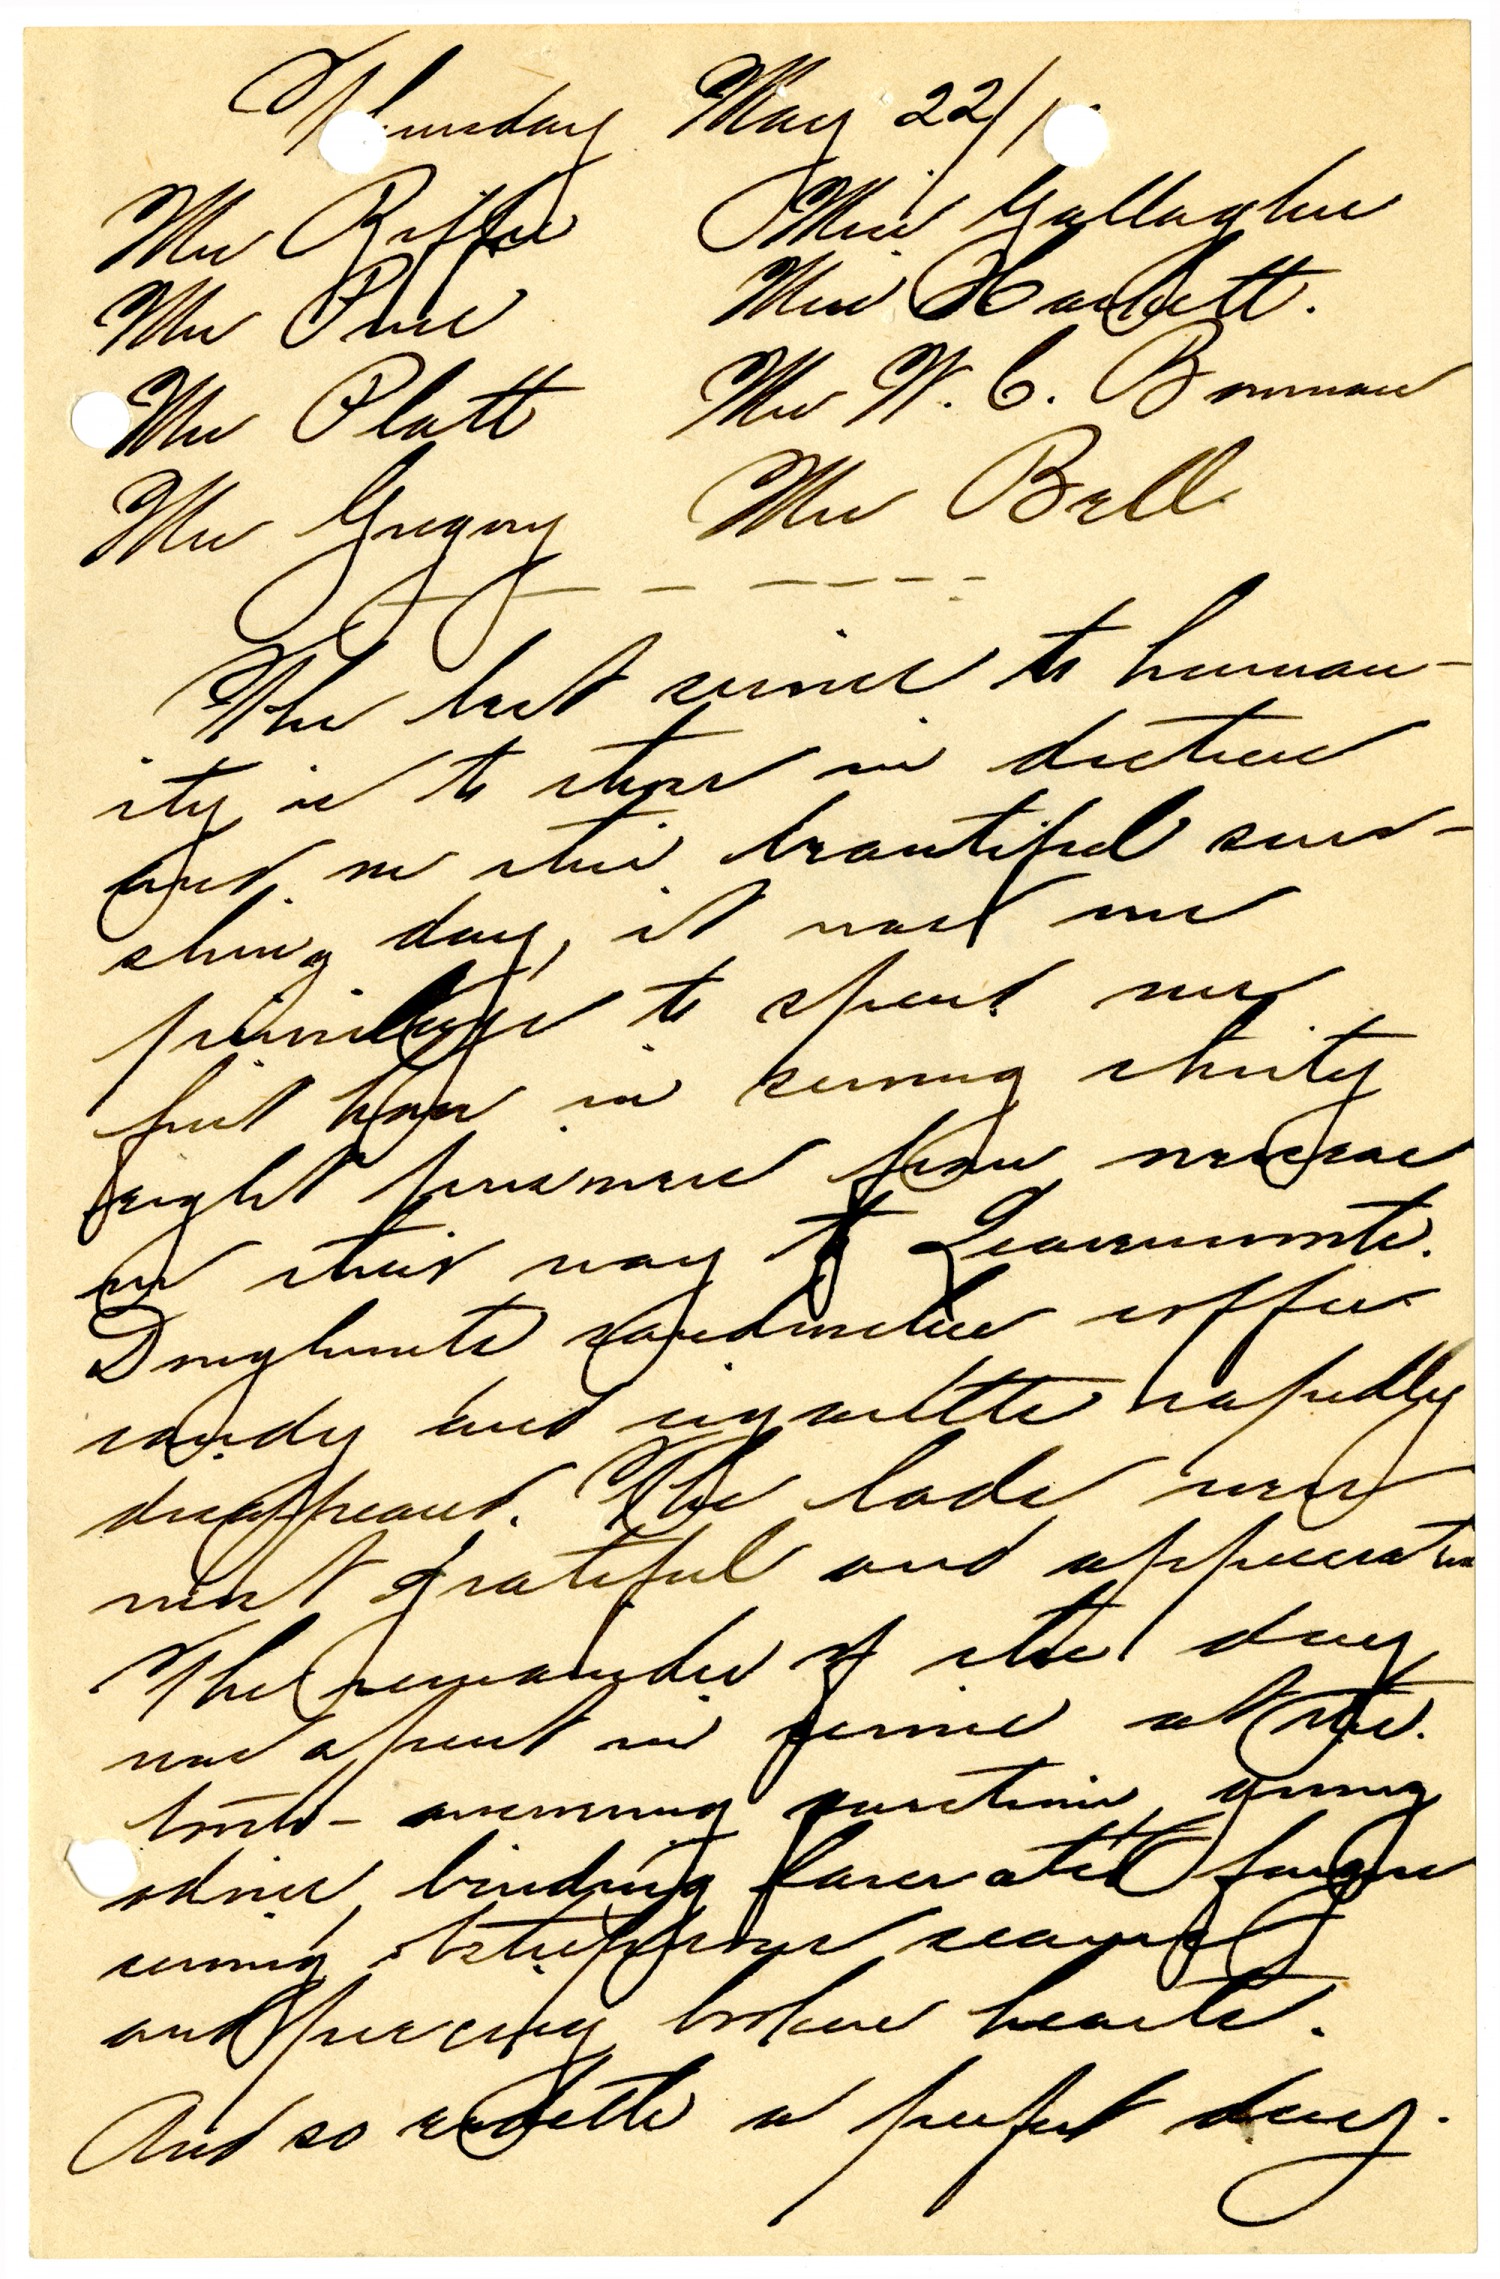 Thursday May 22/1
Mrs Miss Gallagher
Mrs Price Miss Hackett.
Mrs Platt Mrs W. C. Bowman
Mrs Gregory Mrs Bell
The best service to human-
ity is to those in distress
and on this beautiful sun-
shing day, it was our
privilege to spend our
first hour in serving thirty
eight prisoners from
on their way to Leavenworth.
Doughnuts sandwiches coffee
candy and cigarettes rapidly
disappeared. The lads were
most grateful and appreciative
The remainder of the day
was spent in service at the
giving
advice, binding lacerated fingers
serving
and piecing broken hearts.
And so endeth a perfect day.